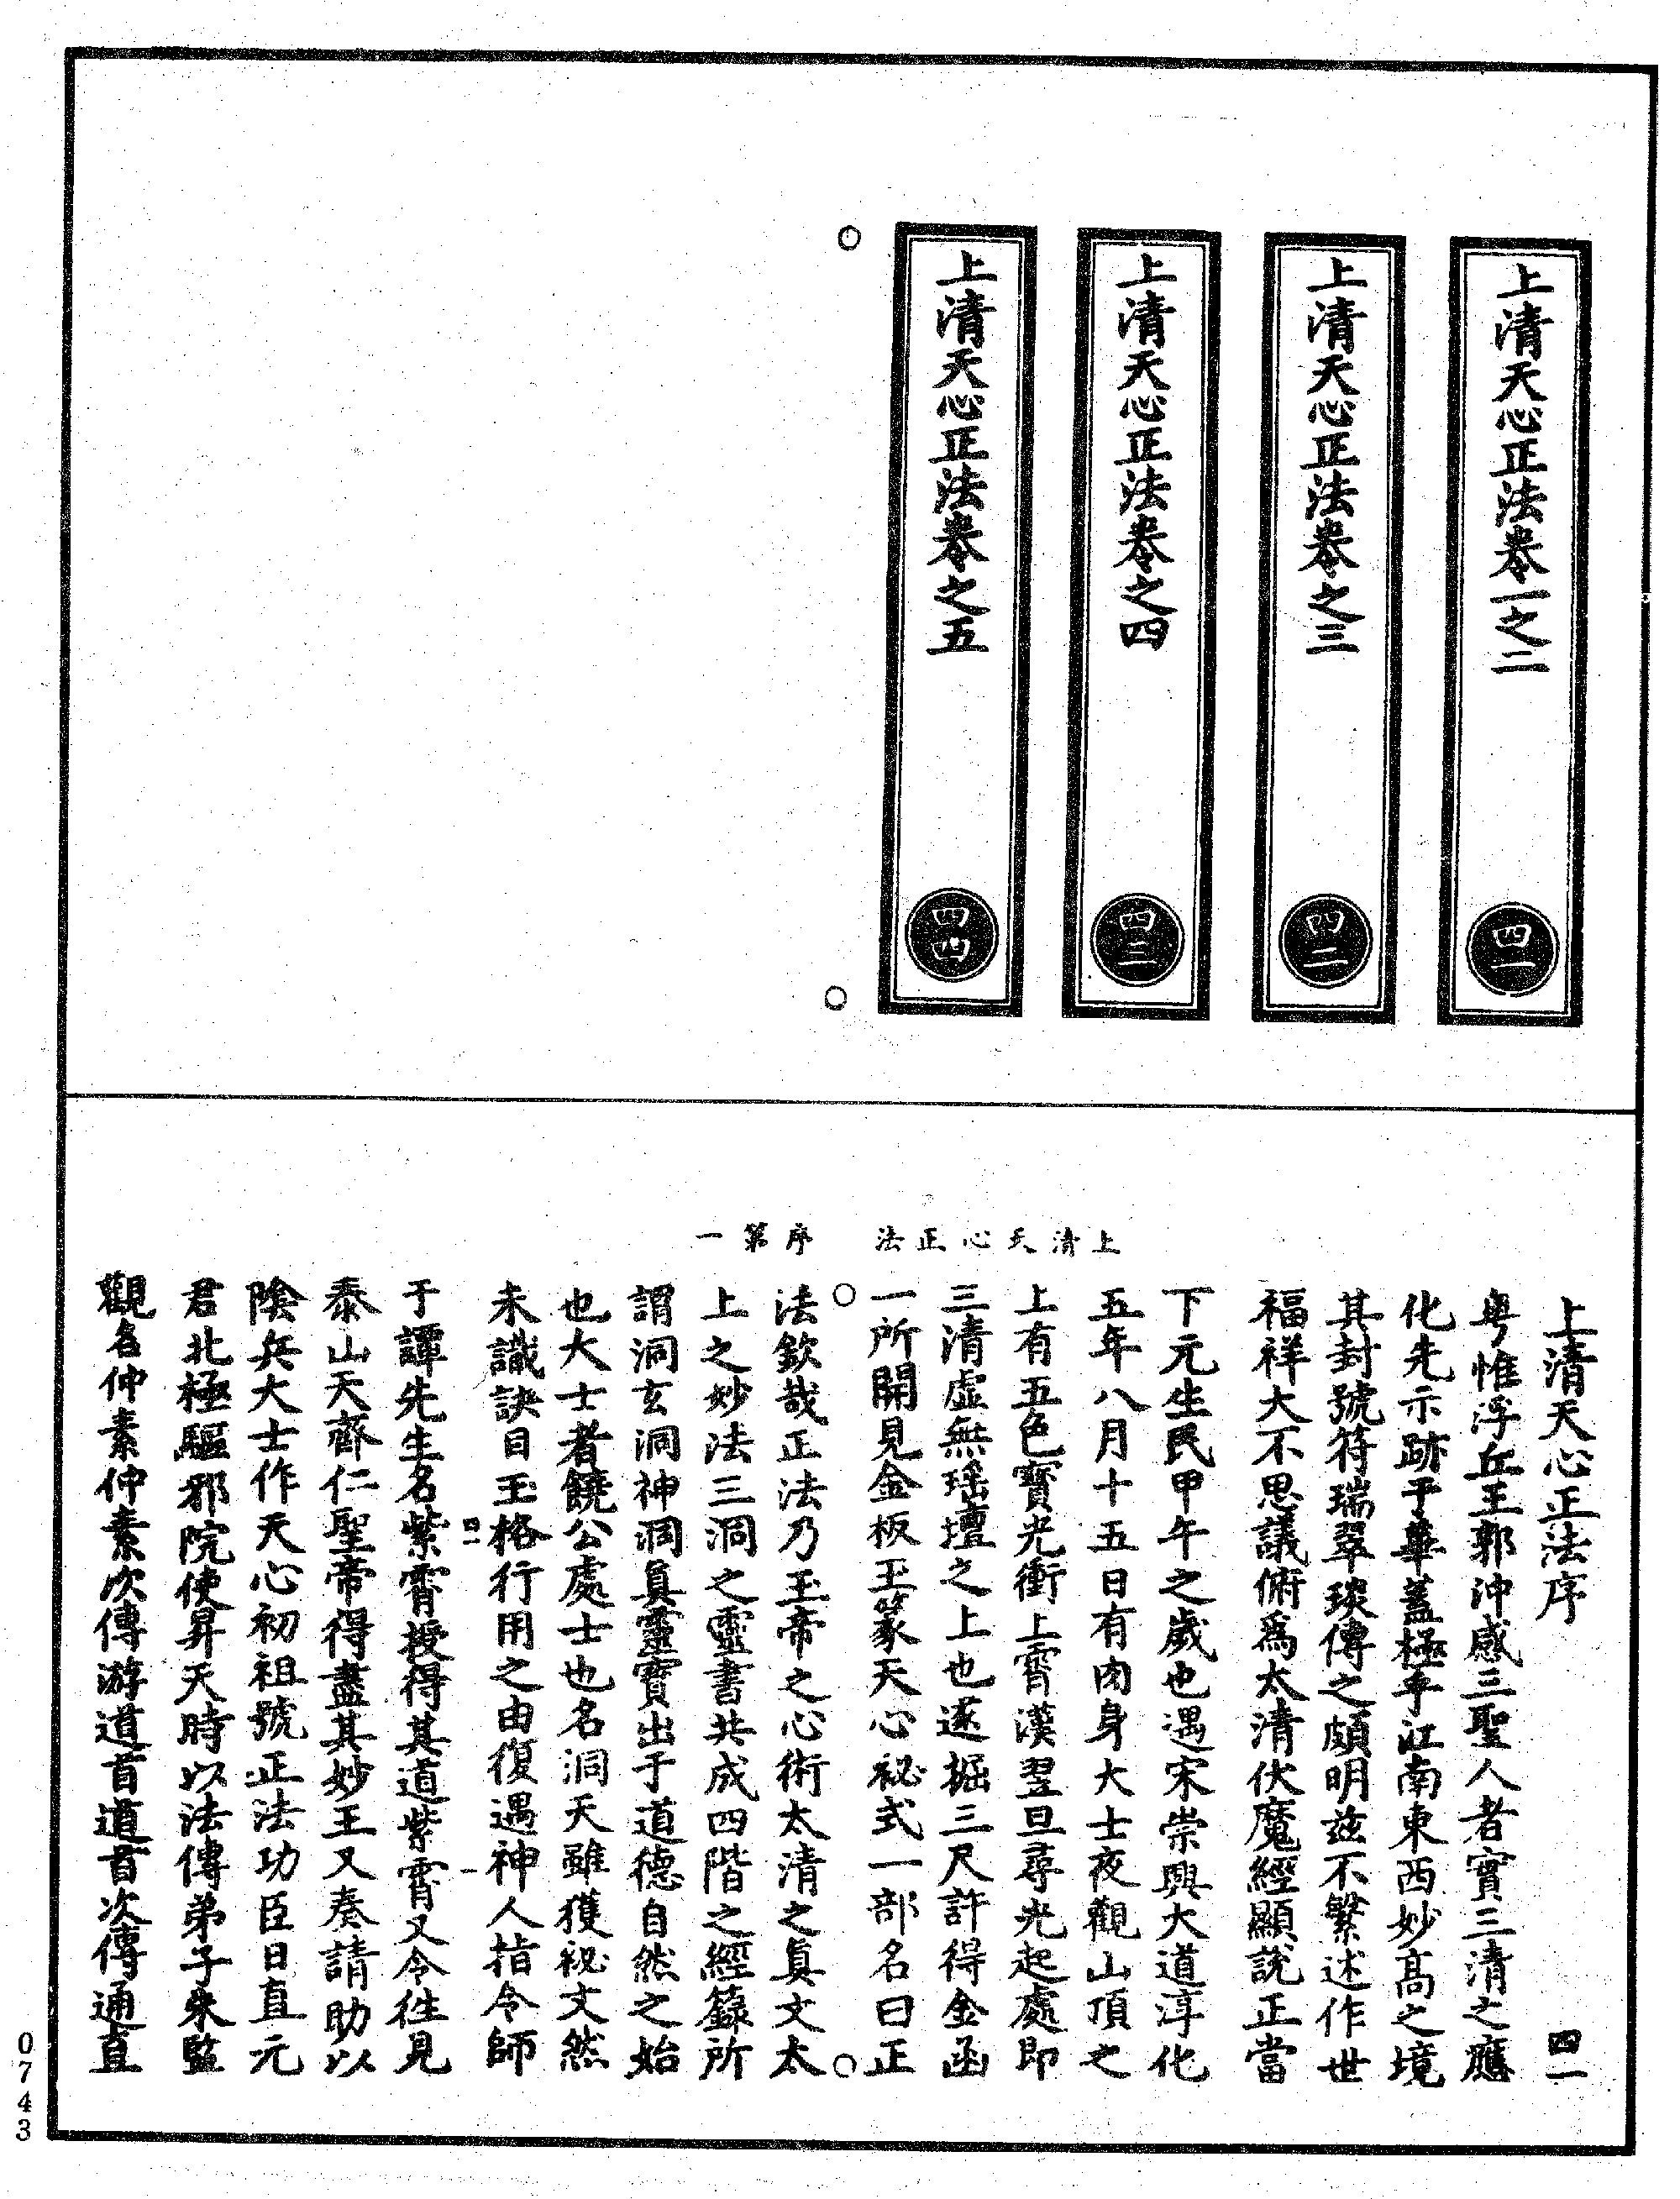 上清天心正法卷一之二
四一
上清天心正法卷之三
四二
上清天心正法卷之四
四三
上清天心正法卷之五
四四
上清天心正法　序第一
上清天心正法序　四一
粤惟浮丘王郭沖感三聖人者實三清之應
化先示跡于華蓋極乎江南東西妙高之境
其封號符瑞翠琰傳之頗明茲不繁述作世
福祥大不思議俯爲太清伏魔經顯說正當
下元生民甲午之歲也遇宋崇興大道淳化
五年八月十五日有肉身大士夜觀山頂之
上有五色寳光衝上霄漢翌旦尋光起處即
三清虛無瑶壇之上也遂掘三尺許得金函
一所開見金板玉篆天心祕式一部名曰正
法欽哉正法乃玉帝之心術太清之眞文太
上之妙法三洞之靈書共成四階之經籙所
謂洞玄洞神洞眞靈寳出于道德自然之始
也大士者饒公處士也名洞天雖獲祕文然
未識訣目玉格行用之由復遇神人指令師
四一　一
于譚先生名紫霄授得其道紫霄又令徃見
泰山天齊仁聖帝得盡其妙王又奏請助以
陰兵大士作天心初祖號正法功臣日直元
君北極驅邪院使昇天時以法傳弟子朱監
觀名仲素仲素次傳游道首道首次傳通直
0743